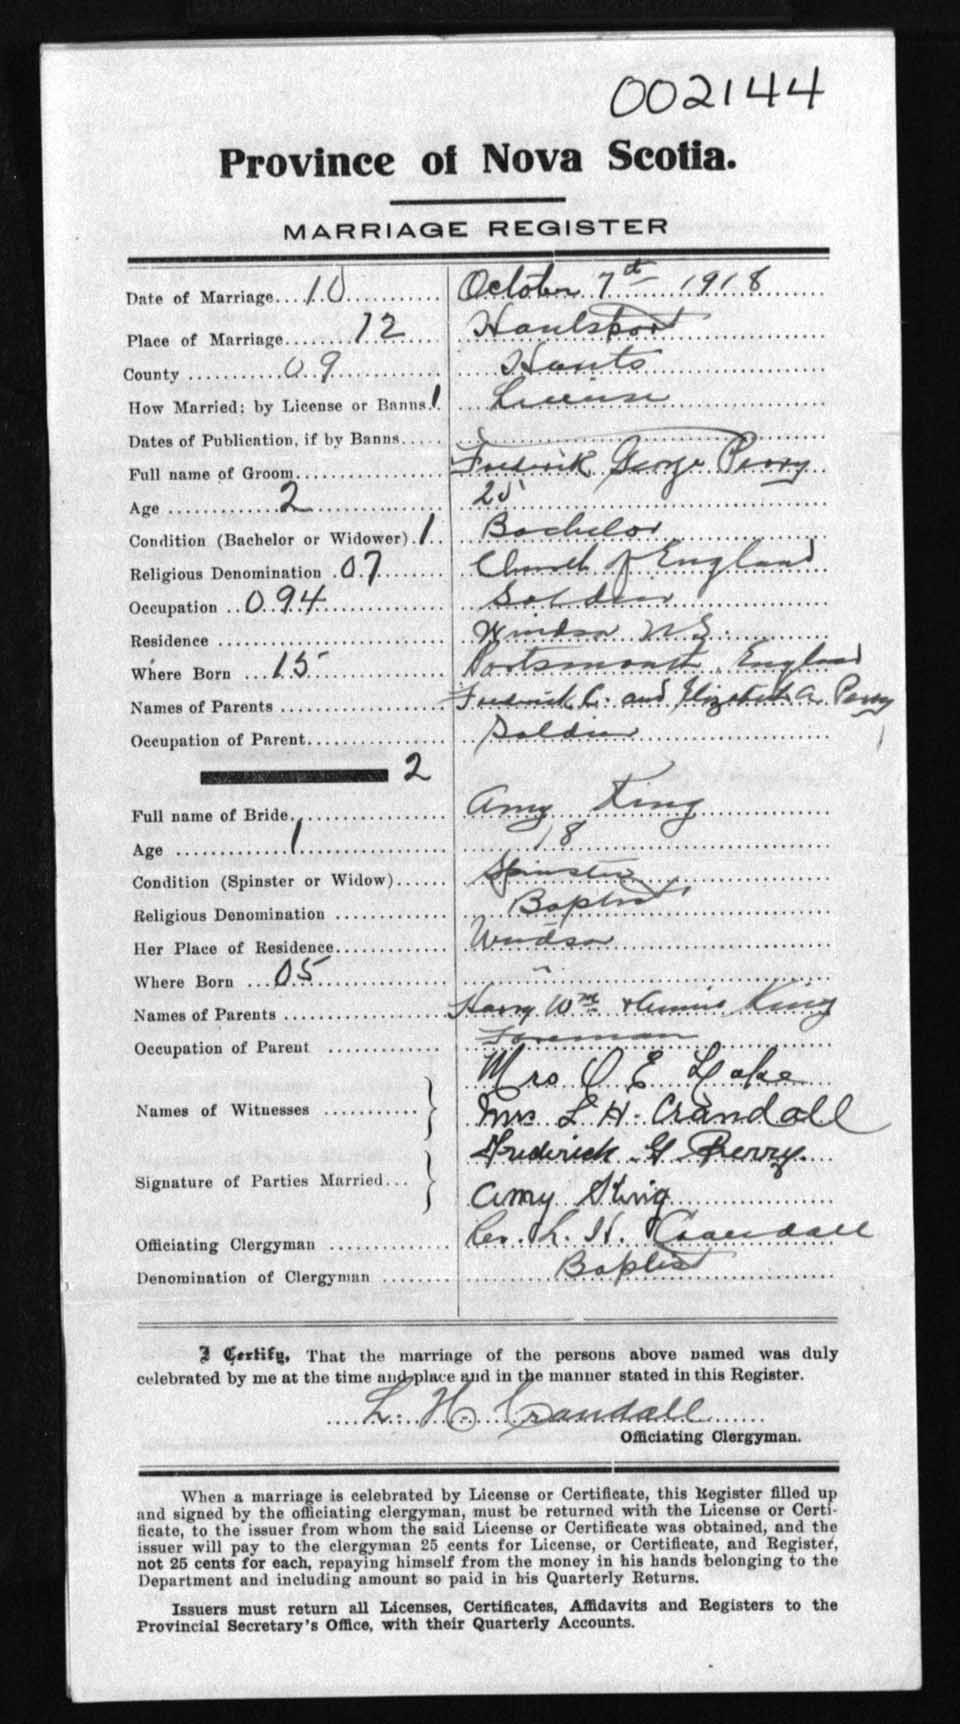 002144
Province of Nova Scotia.
MARRIAGE REGISTER
Date of Marriage....10............ October 7th 1918
Place of Marriage........12..... Hantsport
County ............09............... Hants
How Married; by License or Banns.1. License
Dates of Publication, if by Banns.....
Full name of Groom.................. Frederick George Perry
Age .............2................... 25
Condition (Bachelor or Widower).1.. Bachelor
Religious Denomination .07........ Church of England
Occupation ..094................ Soldier
Residence ........................... Windsor N.S.
Where Born ...15................ Portsmouth, England
Names of Parents .................... Fredrick C. and Elizabeth A. Perry
Occupation of Parent................. Soldier
2
Full name of Bride................... Amy King
Age ..............1.................. 18
Condition (Spinster or Widow)...... Spinster
Religious Denomination .............. Baptist
Her Place of Residence.............. Windsor
Where Born ...05................. "
Names of Parents .................... Harry Wm & Annie King
Occupation of Parent .............. Foreman
Mrs O E Lake
Names of Witnesses ........... } Mrs L H. Crandall
Frederick G Perry
Signature of Parties Married... } Amy King
Officiating Clergyman .............. Rev L. H. Crandall
Denomination of Clergyman ........ Baptist
I Certify, That the marriage of the persons above named was duly
celebrated by me at the time and place and in the manner stated in this Register.
L. H. Crandall
Officiating Clergyman.
When a marriage is celebrated by License or Certificate, this Register filled up
and signed by the officiating clergyman, must be returned with the License or Certi-
ficate, to the issuer from whom the said License or Certificate was obtained, and the
issuer will pay to the clergyman 25 cents for License, or Certificate, and Register,
not 25 cents for each, repaying himself from the money in his hands belonging to the
Department and including amount so paid in his Quarterly Returns.
Issuers must return all Licenses, Certificates, Affidavits and Registers to the
Provincial Secretary's Office, with their Quarterly Accounts.